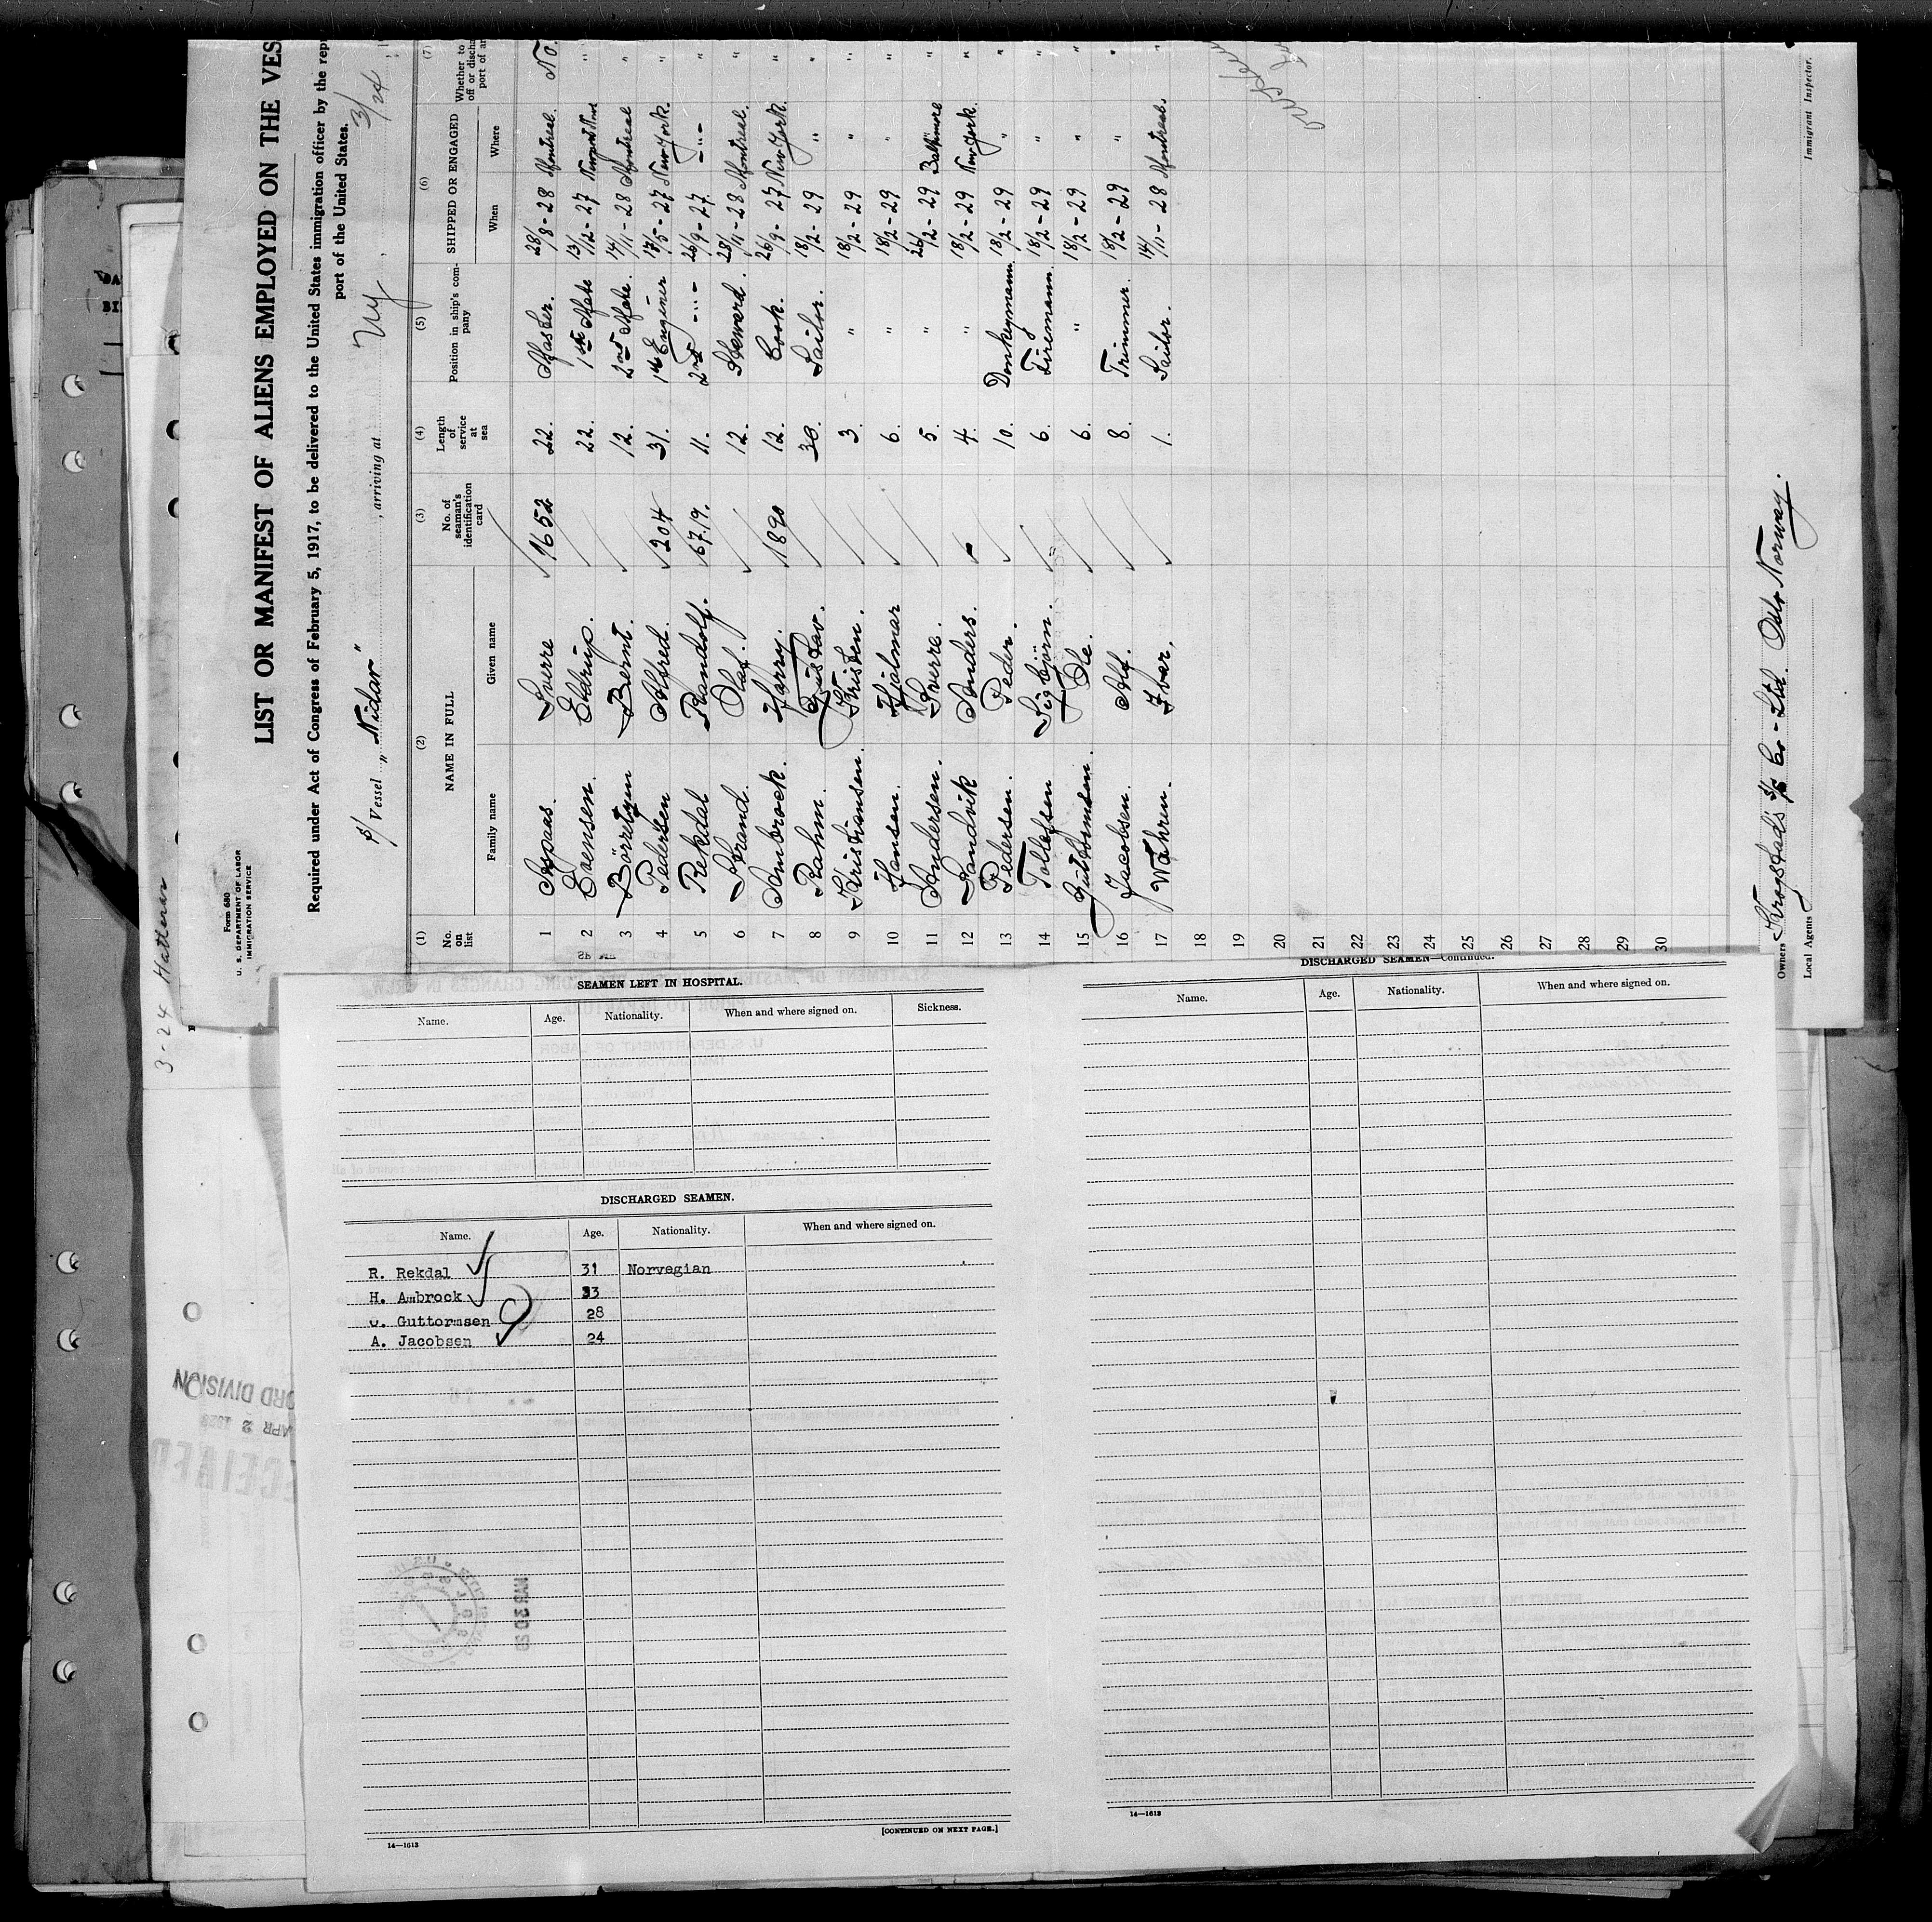 Form 680
U. S. DEPARTMENT OF LABOR
IMMIGRATION SERVICE
LIST OR MANIFEST OF ALIENS EMPLOYED ON THE VES
Required under Act of Congress of February 5, 1917, to be delivered to the United States immigration officer by the rep
port of the United States.
S/ Vessel "Nidar", arriving at NY, 3/24
(1) (2) (3) (4) (5) (6) (7)
No. on list NAME IN FULL No. of seaman's identification card Length of service at sea Position in ship's company SHIPPED OR ENGAGED Whether to
off or disch
port of ar
Family name Given name When Where
1 Sverre 1652 22. Master. 28/8-28 Montreal. No.
2 Evensen. Eldrup. 22. 1st Mate 13/12-27 "
3 Bernt. 12. 2nd Mate. 14/11-28 Montreal "
4 Pedersen Alfred. 204 31. 1st Enginer 17/5-27 New York. "
5 Rekdal Randolf. 6719. 11. 2nd -"- 26/9-27. -"- "
6 Strand. Olaf. 12. Steward. 28/11-28 Montreal. "
7 Ambrock. Harry. 1890 12. Cook. 26/9-27 New York. "
8 Rahm. Gustav. 30. Sailor. 18/2-29 " "
9 Kristiansen. Kristen. 3. " 18/2-29 " "
10 Hansen. Hjalmar 6. " 18/2-29 " "
11 Andersen. Sverre. 5. " 26/2-29 Baltimore "
12 Sandvik Anders. 4. " 18/2-29 New York. "
13 Pedersen. Peder. 10. Donkeymann. 18/2-29 " "
14 Tollefsen Sigbjörn. 6. Firemann. 18/2-29 " "
15 Guttormsen. Ole. 6. " 18/2-29 " "
16 Jacobsen. Alf. 8. Trimmer. 18/2-29 " "
17 Wahren. Ivar. 1. Sailor. 14/11-28 Montreal. "
18
19
20
21
22
23
24
25
26
27
28
29
30
Owners Krogstad's S/S Co-Ltd. Oslo Norway.
Local Agents
Immigrant Inspector.
3-24
SEAMEN LEFT IN HOSPITAL.
Name. Age. Nationality. When and where signed on. Sickness.
DISCHARGED SEAMEN.
Name. Age. Nationality. When and where signed on.
R. Rekdal 31 Norwegian
H. Ambrock 33
Guttormsen 28
A. Jacobsen 24
14—1613
[CONTINUED ON NEXT PAGE.]
DISCHARGED SEAMEN—Continued.
Name. Age. Nationality. When and where signed on.
14—1613
ORD DIVISION
APR 2
CEIVED
MAR 30 29